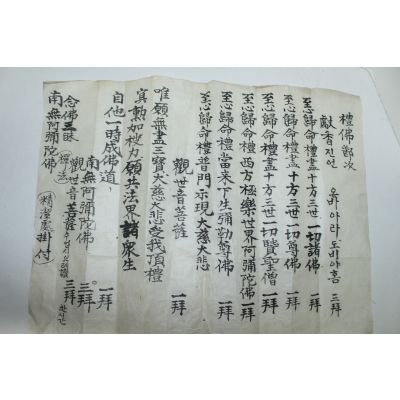 禮佛節次
獻香진언 옴바아라도비야훔 三拜
至心歸命禮盡十方三世一切諸佛 一拜
至心歸命禮盡十方三世一切尊佛 一拜
至心歸命禮盡十方三世一切賢聖僧 一拜
至心歸命禮西方極樂世界阿彌陀佛 一拜
至心歸命禮當來下生彌勒尊佛 一拜
至心歸命禮普門示現大慈大悲
觀世音菩薩 一拜
唯願無盡三寶大慈大悲受我頂禮
冥勳加被力願共法界諸衆生
自他一時成佛道 一拜
南無阿彌陀佛 三拜
觀世音菩薩 三拜
念佛三昧
南無阿彌陀佛 精潔處掛付